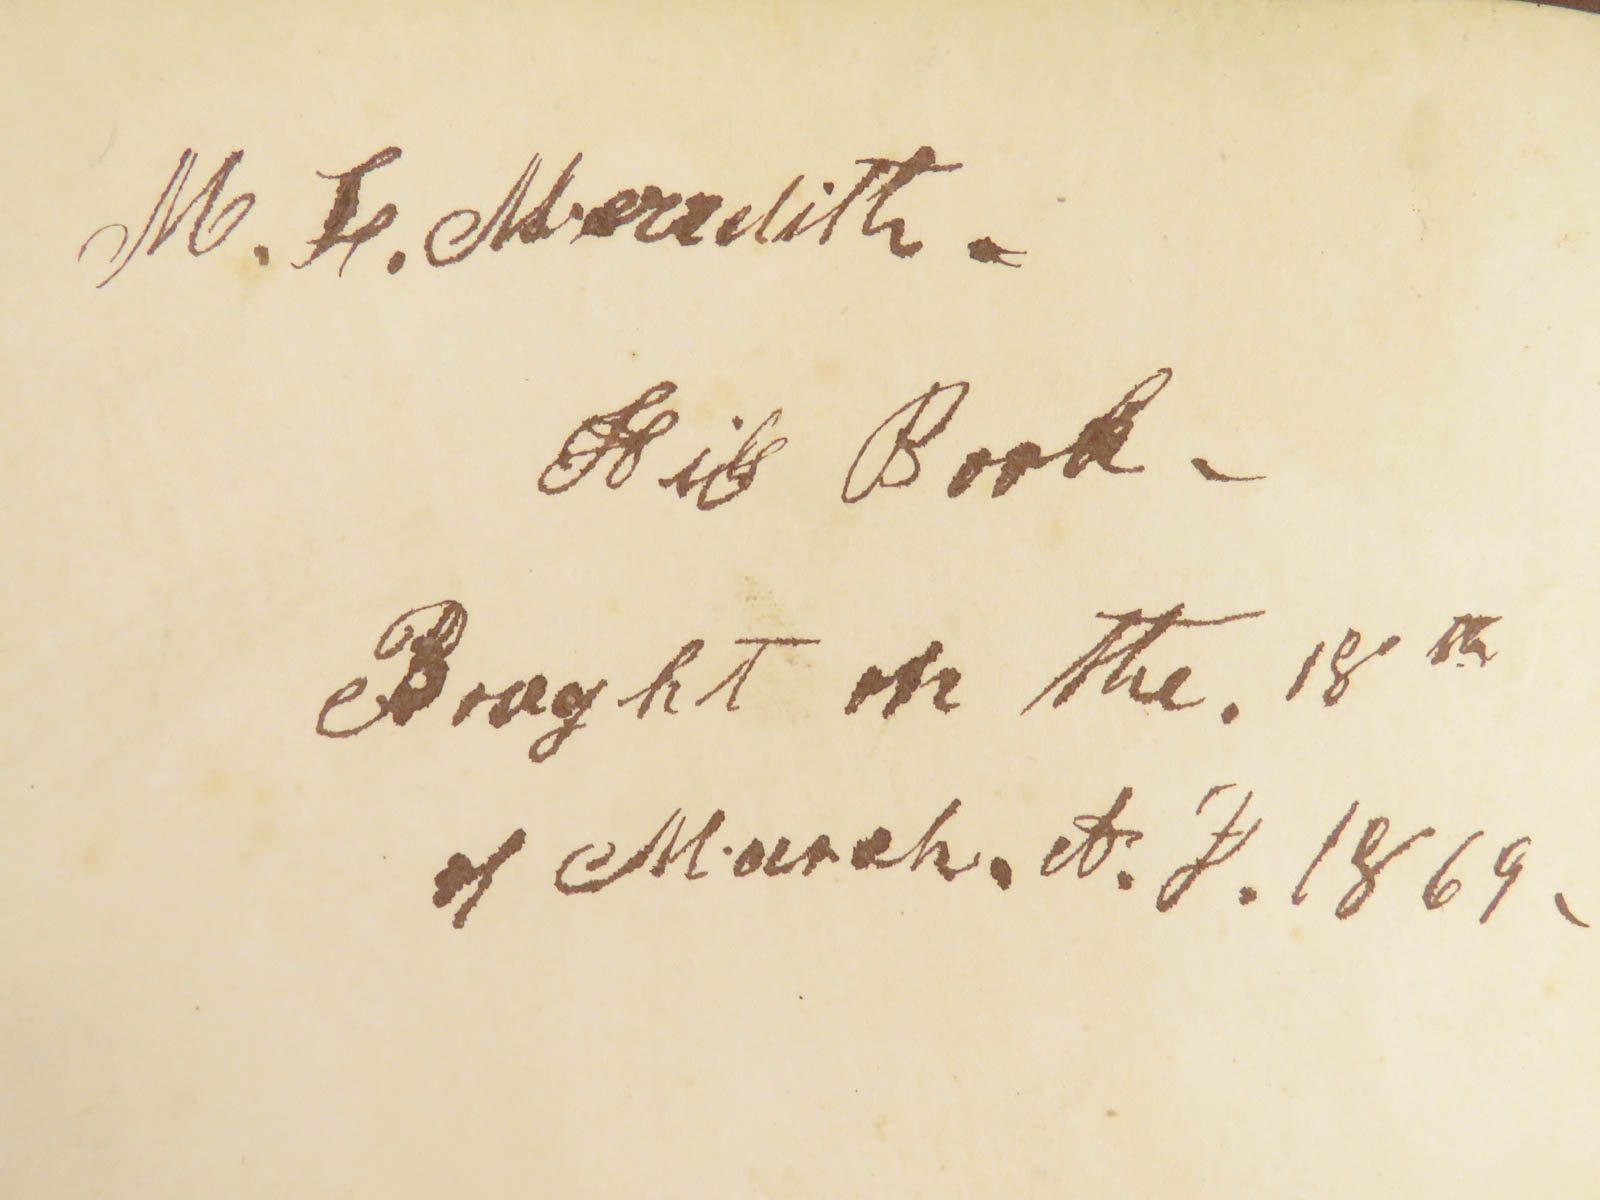 M. L. Meredith -
His Book -
Bought on the. 18th
of March. A. D. 1869.